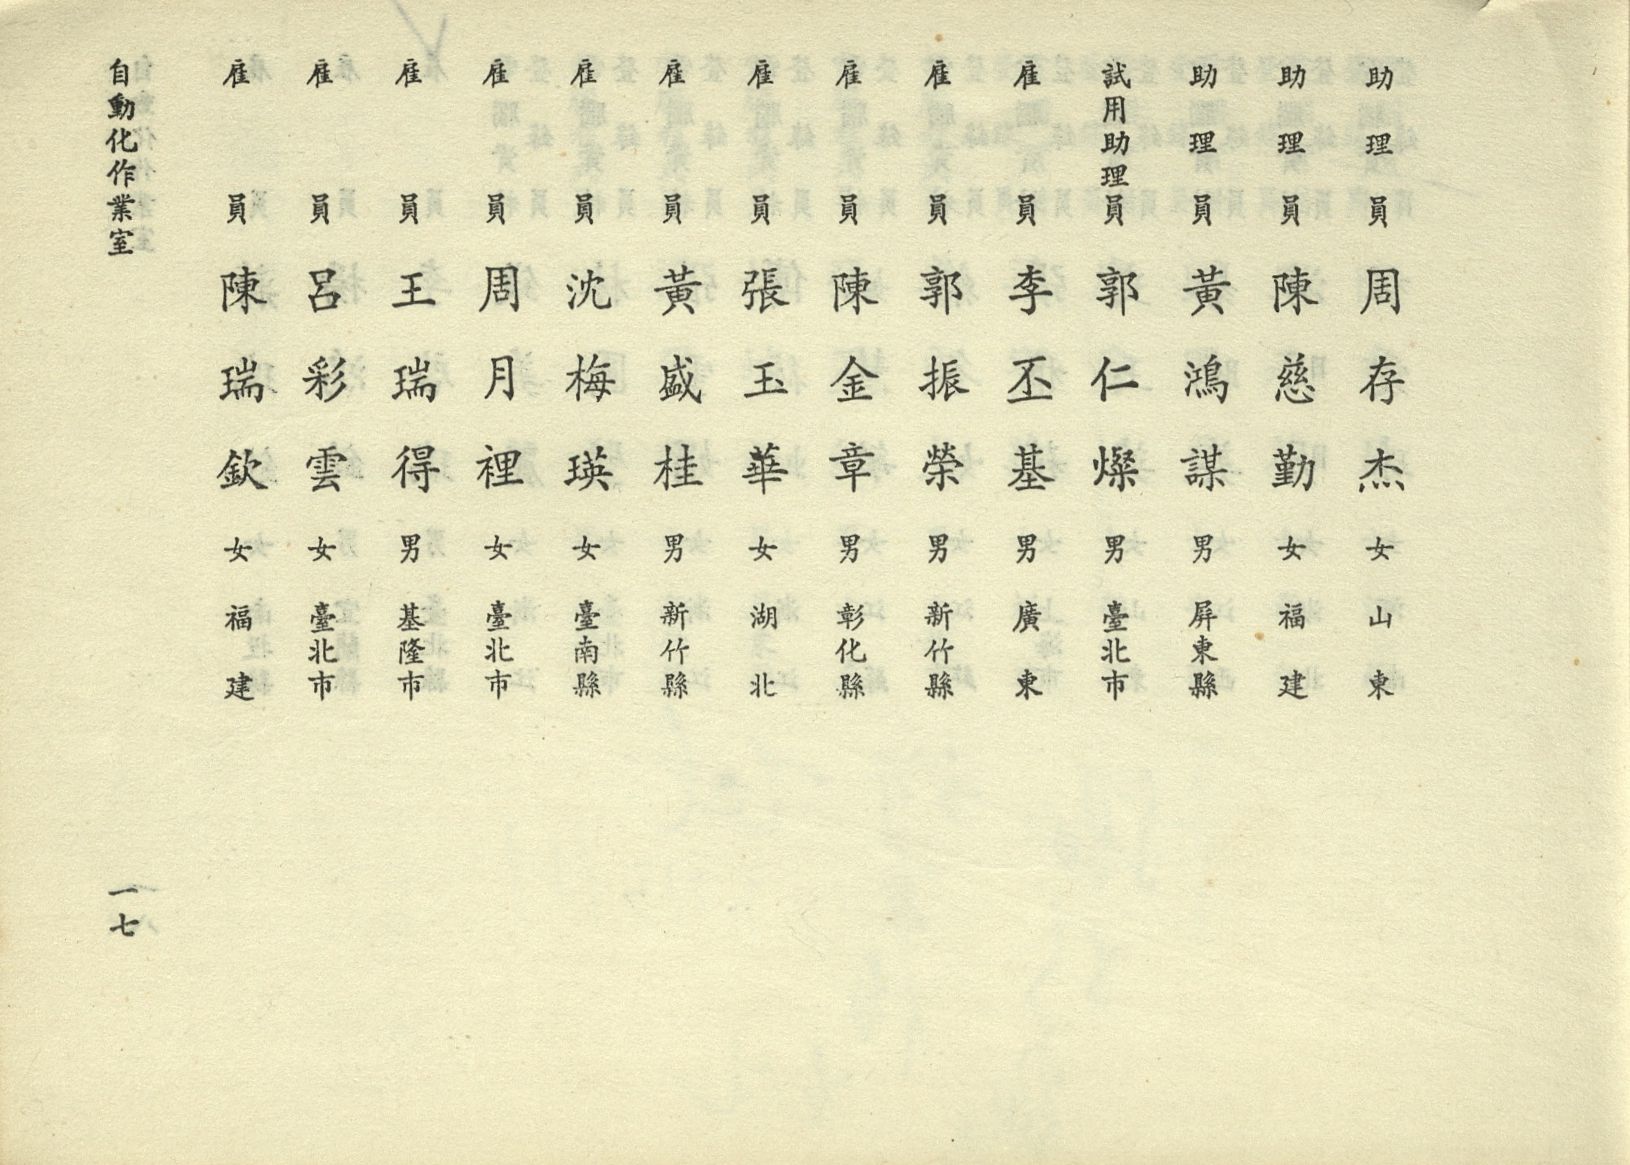 助理員周存杰女山東
助理員陳慈勤女福建
助理員黃鴻謀男屏東縣
試用助理員郭仁燦男臺北市
雇員李丕基男廣東
雇員郭振榮男新竹縣
雇員陳金章男彰化縣
雇員張玉華女湖北
雇員黃盛桂男新竹縣
雇員沈梅瑛女臺南縣
雇員周月裡女臺北市
雇員王瑞得男基隆市
雇員呂彩雲女臺北市
雇員陳瑞欽女福建
自動化作業室
一七